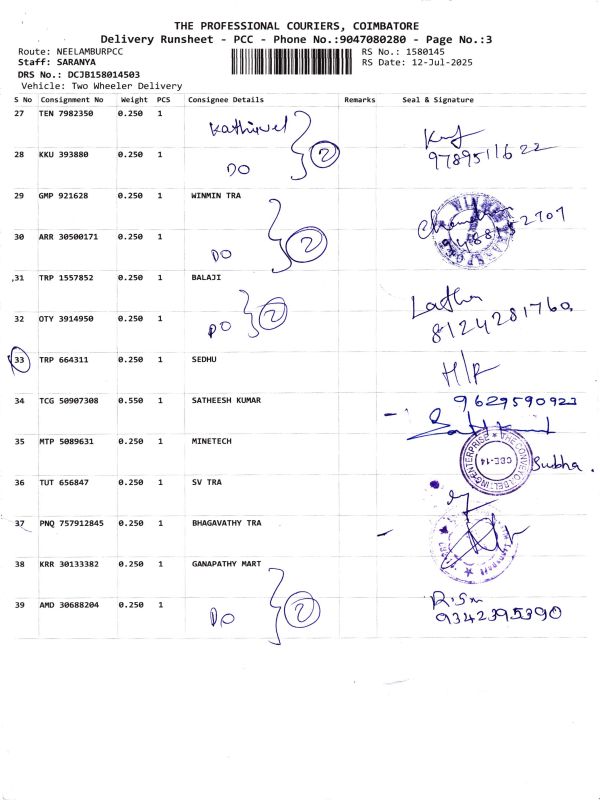 THE PROFESSIONAL COURIERS, COIMBATORE
Delivery Runsheet - PCC - Phone No.:9047080280 - Page No.:3
Route: NEELAMBURPCC
RS No.: 1580145
Staff: SARANYA
RS Date: 12-Jul-2025
DRS No.: DCJB158014503
Vehicle: Two Wheeler Delivery
S No Consignment No Weight PCS Consignee Details Remarks Seal & Signature
27 TEN 7982350 0.250 1 Kathirvel
28 KKU 393880 0.250 1 DO 2 9789511622
29 GMP 921628 0.250 1 WINMIN TRA
30 ARR 30500171 0.250 1 DO 2
31 TRP 1557852 0.250 1 BALAJI Latha
32 OTY 3914950 0.250 1 DO 2 8124281760
33 TRP 664311 0.250 1 SEDHU H/R
34 TCG 50907308 0.550 1 SATHEESH KUMAR 9629590923
35 MTP 5089631 0.250 1 MINETECH Subha.
CBE-14
36 TUT 656847 0.250 1 SV TRA
37 PNQ 757912845 0.250 1 BHAGAVATHY TRA
38 KRR 30133382 0.250 1 GANAPATHY MART
39 AMD 30688204 0.250 1 DO 2 9342395390